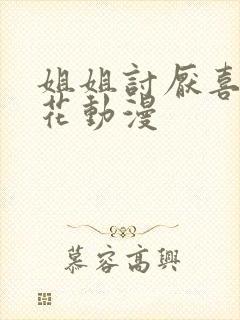 姐姐討厭喜
花動漫
慕容高興